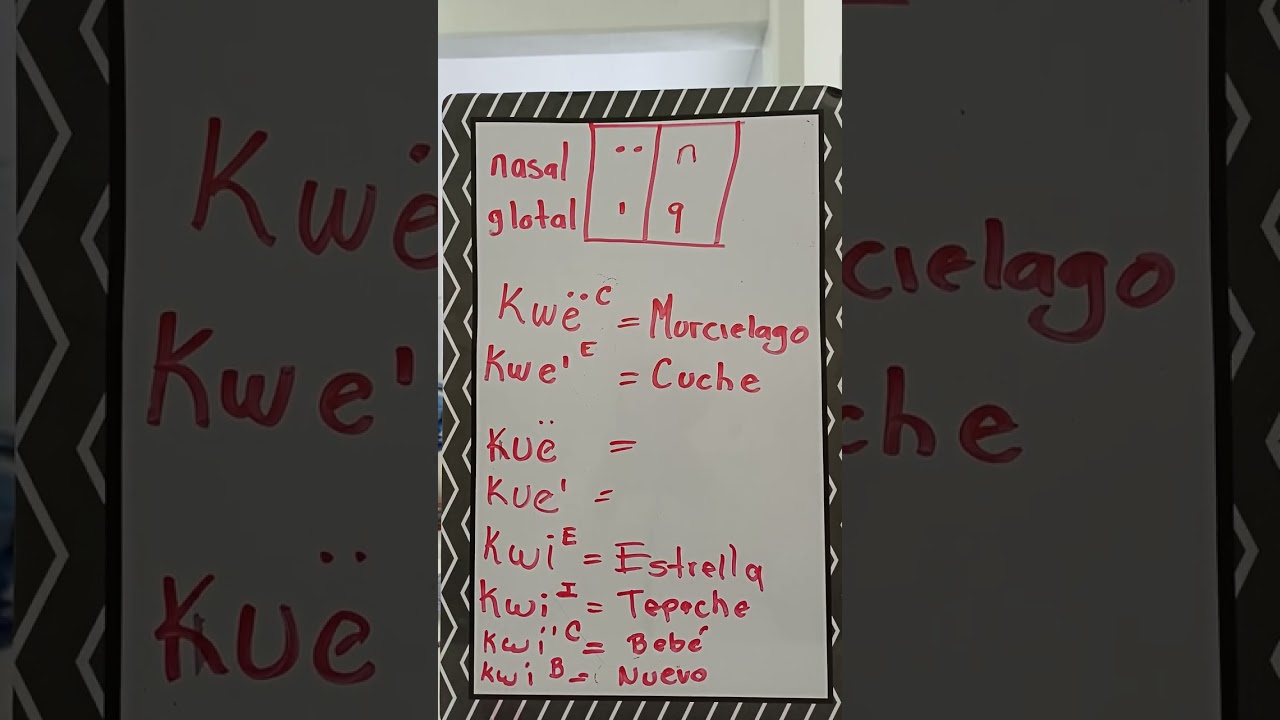 nasal ¨ n
glotal ' q
Kwë̈ᶜ = Murcielago
Kwe'ᴱ = Cuche
Kuë =
Kue' =
Kwiᴱ = Estrella
Kwiᴵ = Tepache
Kwi'ᶜ = Bebé
Kwiᴮ = Nuevo